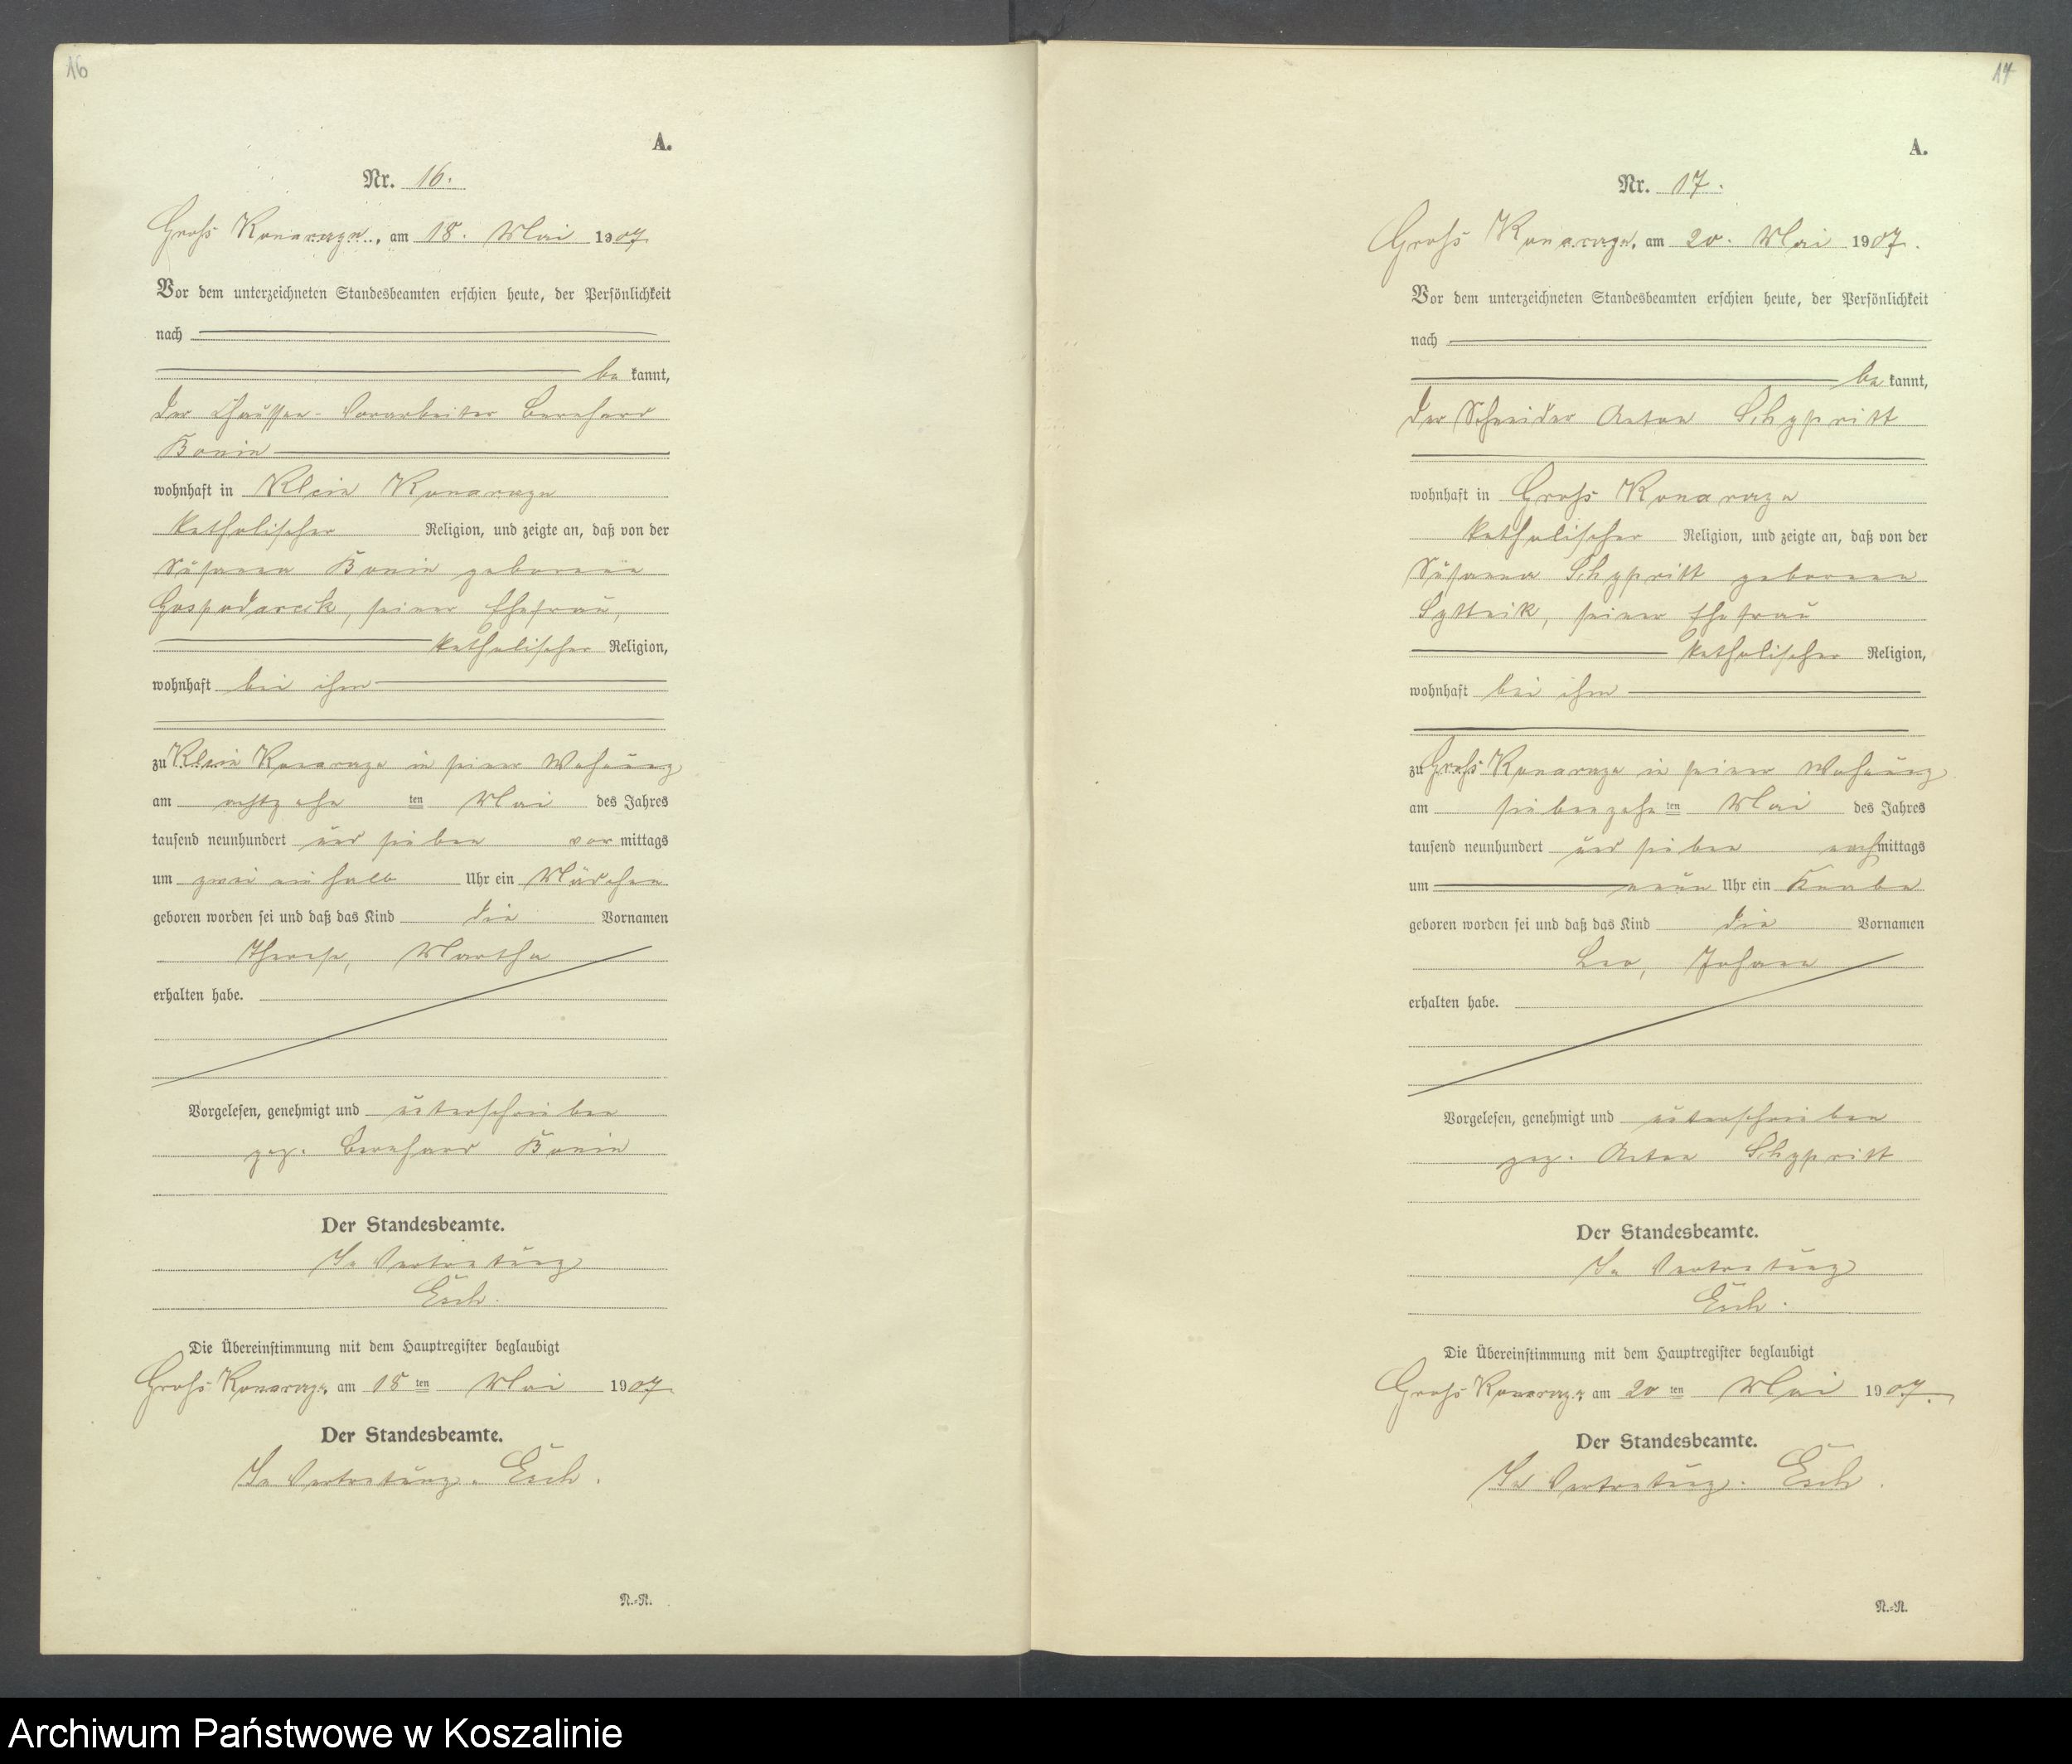 16
A.
Nr. 16.
Groß Konarzyn, am 18. Mai 1907
Vor dem unterzeichneten Standesbeamten erschien heute, der Persönlichkeit
nach
be kannt,
der Chaussee-Vorarbeiter Bernhard
Bonin
wohnhaft in Klein Konarzyn
katholischer Religion, und zeigte an, daß von der
Susanna Bonin geborenen
seiner Ehefrau,
katholischer Religion,
wohnhaft bei ihm
zu Klein Konarzyn in seiner Wohnung
am achtzehn ten Mai des Jahres
tausend neunhundert und sieben vor mittags
um zwei ein halb Uhr ein Mädchen
geboren worden sei und daß das Kind die Vornamen
Therese, Martha
erhalten habe.
Vorgelesen, genehmigt und unterschrieben
gez. Bernhard Bonin
Der Standesbeamte.
In Vertretung
Esch.
Die Übereinstimmung mit dem Hauptregister beglaubigt
Groß Konarzyn am 18 ten Mai 1907
Der Standesbeamte.
In Vertretung. Esch.
N.=R.
17
A.
Nr. 17.
Groß Konarzyn, am 20. Mai 1907.
Vor dem unterzeichneten Standesbeamten erschien heute, der Persönlichkeit
nach
be kannt,
der Schneider Anton
wohnhaft in Groß Konarzyn
katholischer Religion, und zeigte an, daß von der
Susanna geborenen
seiner Ehefrau
katholischer Religion,
wohnhaft bei ihm
zu Groß Konarzyn in seiner Wohnung
am siebenzehn ten Mai des Jahres
tausend neunhundert und sieben nach mittags
um neun Uhr ein Knabe
geboren worden sei und daß das Kind die Vornamen
Leo, Johann
erhalten habe.
Vorgelesen, genehmigt und unterschrieben
gez. Anton
Der Standesbeamte.
In Vertretung
Esch.
Die Übereinstimmung mit dem Hauptregister beglaubigt
Groß Konarzyn am 20 ten Mai 1907.
Der Standesbeamte.
In Vertretung. Esch.
N.=R.
Archiwum Państwowe w Koszalinie